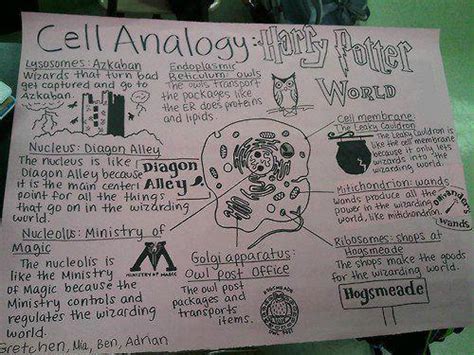 Cell Analogy: Harry Potter
World
Lysosomes: Azkaban
Wizards that turn bad
get captured and go to
Azkaban.
Endoplasmic
Reticulum: owls
The owls transport
the packages like
the ER does proteins
and lipids.
Cell membrane:
The Leaky Cauldron
The Leaky Cauldron is
like the cell membrane
because it only lets
wizards into the
wizarding world.
Nucleus: Diagon Alley
The nucleus is like
Diagon Alley because
it is the main center/
point for all the things
that go on in the wizarding
world.
Diagon
Alley
Mitichondrion: wands
Wands produce all the
power in the wizarding
world, like mitichondrion.
Wands
Nucleolis: Ministry of
Magic
The nucleolis is
like the Ministry
of Magic because the
Ministry controls and
regulates the wizarding
world.
MINISTRY OF MAGIC
Golgi apparatus:
Owl Post Office
The owl post
packages and
transports
items.
HOGSMEADE
OWL POST
Ribosomes: shops at
Hogsmeade
The shops make the goods
for the wizarding world.
Hogsmeade
Gretchen, Mia, Ben, Adrian